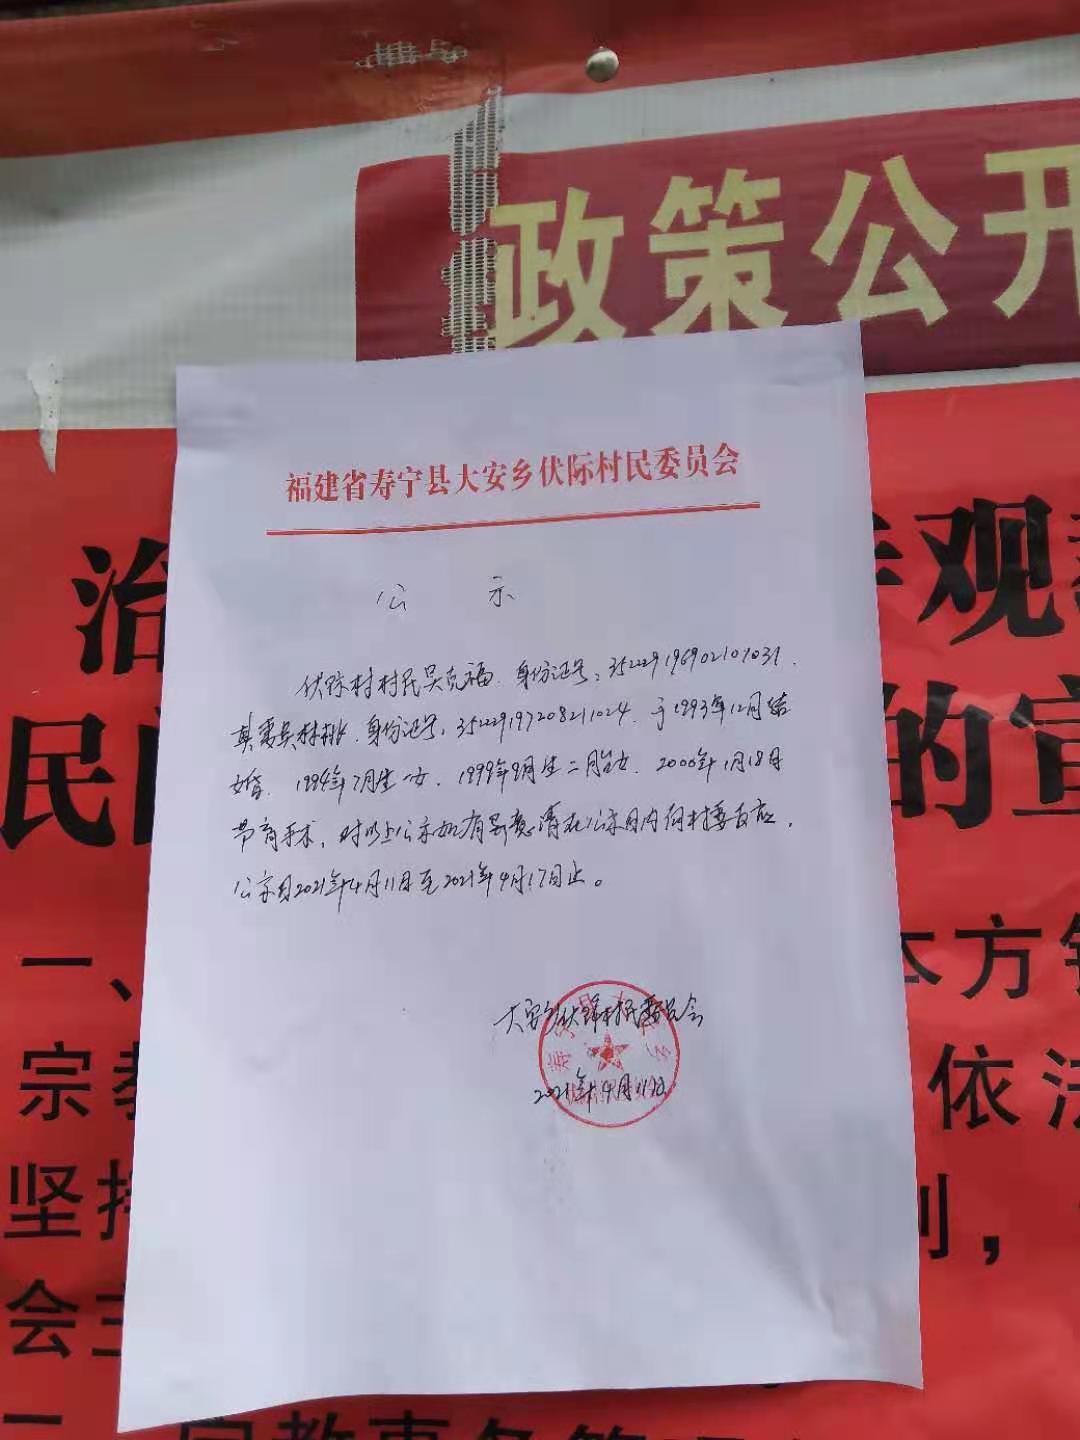 政策公开
福建省寿宁县大安乡伏际村民委员会
治 观
公 示
民 的宣
伏际村村民吴克福、身份证号：352229196902101031.
其妻吴林桃、身份证号：352229197208211024、于1993年12月结
婚、1994年7月生一女、1999年9月生二胎女、2000年1月18日
节育手术，对以上公示如有异意请在公示日内向村委反应，
公示日2021年4月11日至2021年4月17日止。
一、 本方针
大安乡伏际村民委员会
宗教 依法
2021年4月11日
坚持 则，
会主